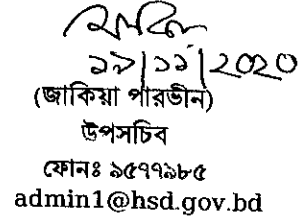 ১৯/১১/2020
(জাকিয়া পারভীন)
উপসচিব
ফোনঃ ৯৫৭৭৯৮৫
admin1@hsd.gov.bd